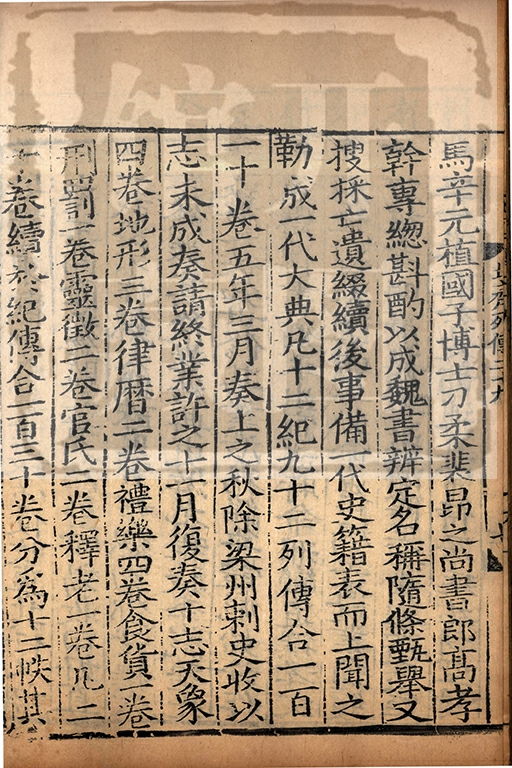 馬辛元植國子博士刁柔裴昂之尚書郎高孝
幹專緫斟酌以成魏書辨定名稱隨條甄舉又
搜採亡遺綴續後事備一代史籍表而上聞之
勒成一代大典凡十二紀九十二列傳合一百
一十卷五年三月奏上之秋除梁州刺史收以
志未成奏請終業許之十一月復奏十志天象
四卷地形三卷律曆二卷禮樂四卷食貨一卷
刑罰一卷靈徵二卷官氏二卷釋老一卷凡二
十卷續於紀傳合一百三十卷分爲十二帙其